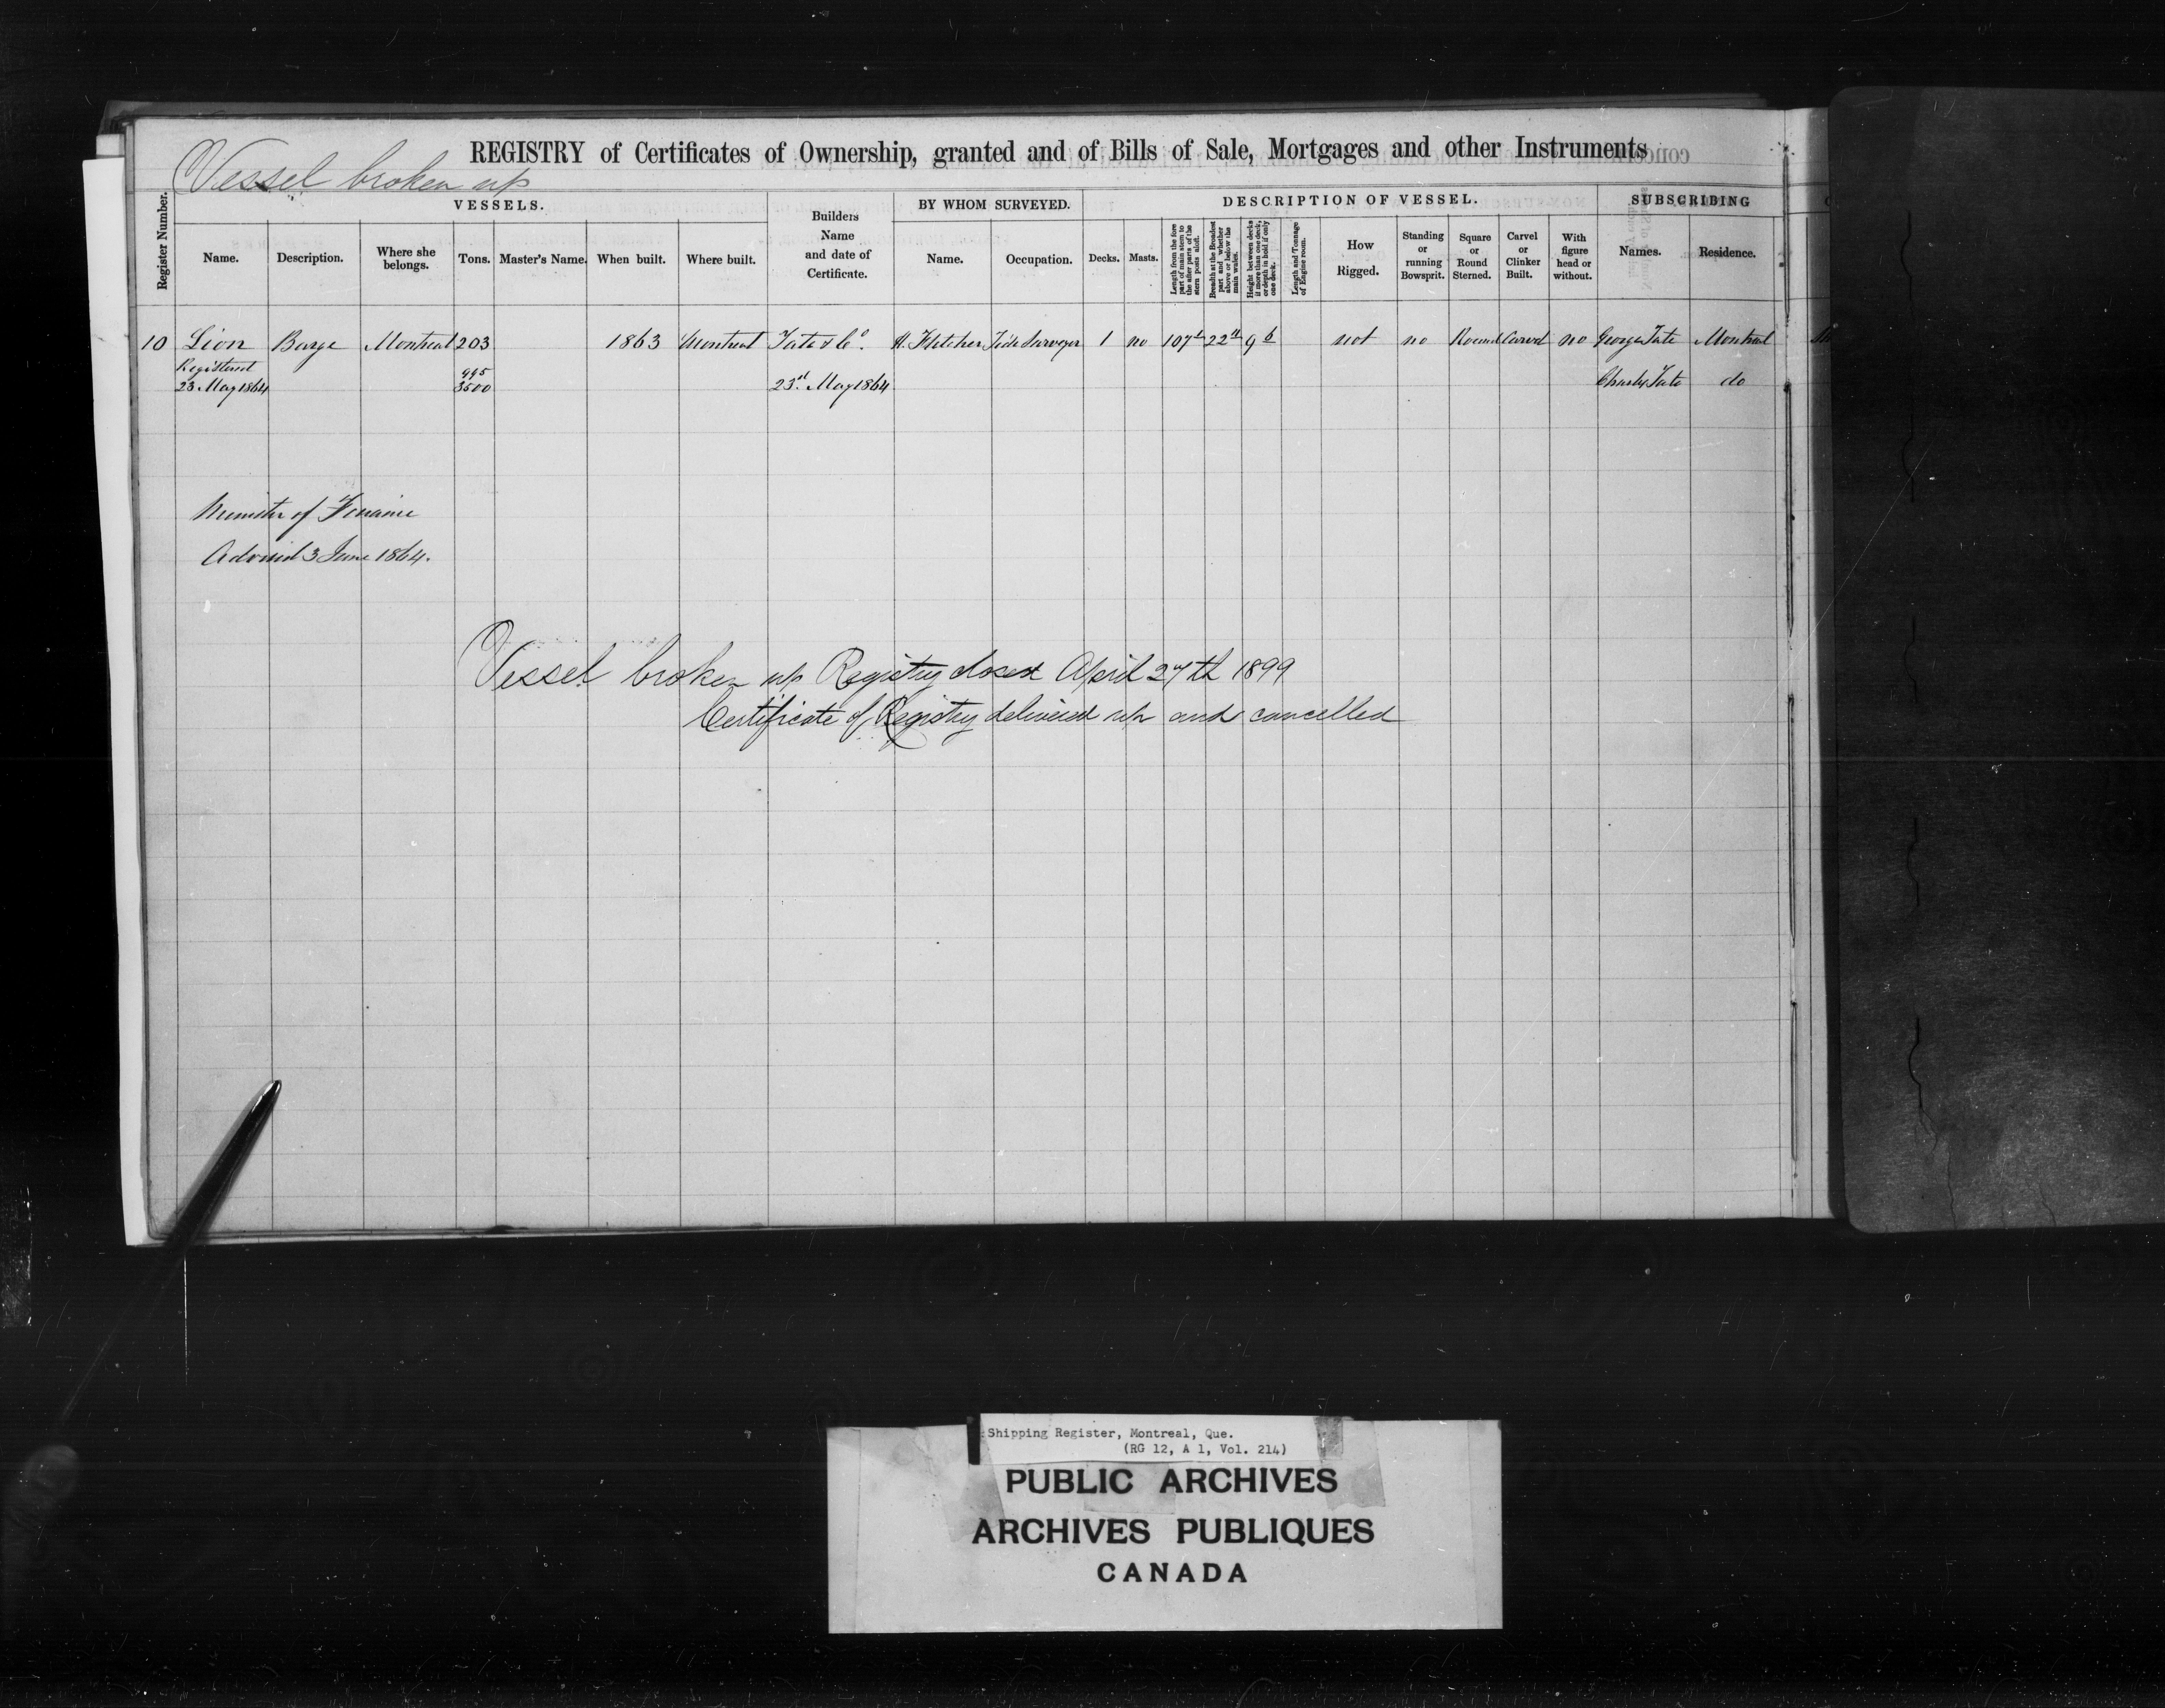 REGISTRY of Certificates of Ownership, granted and of Bills of Sale, Mortgages and other Instruments
Vessel broken up
Register Number.
VESSELS.
Name.
Description.
Where she belongs.
Tons.
Master's Name.
When built.
Where built.
Builders Name and date of Certificate.
BY WHOM SURVEYED.
Name.
Occupation.
DESCRIPTION OF VESSEL.
Decks.
Masts.
Length from the fore part of main stem to the after parts of the stern posts aloft.
Breadth at the Broadest part and whether above or below the main wales.
Height between decks if more than one deck, or depth in hold if only one deck.
Length and Tonnage of Engine room.
How Rigged.
Standing or running Bowsprit.
Square or Round Sterned.
Carvel or Clinker Built.
With figure head or without.
SUBSCRIBING
Names.
Residence.
10 Lion Barge Montreal 203 1863 Montreal Tate & Co. H. Fletcher Tide Surveyor 1 no 107 22 9 not no Round Carvel no George Tate Montreal
Registered
23 May 1864 995/3500 23rd May 1864 Charles Tate do
Minister of Finance
Advised 3 June 1864.
Vessel broken up Registry closed April 27th 1899
Certificate of Registry delivered up and cancelled
Shipping Register, Montreal, Que.
(RG 12, A 1, Vol. 214)
PUBLIC ARCHIVES
ARCHIVES PUBLIQUES
CANADA